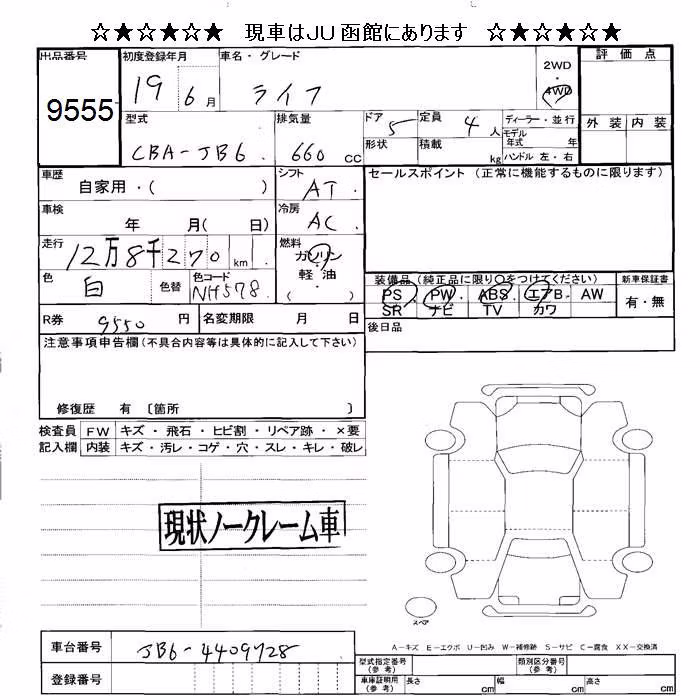 ☆★☆★☆★ 現車はJU函館にあります ☆★☆★☆★
出品番号 初度登録年月 車名・グレード 2WD 評価点
9555 19 6月 ライフ 4WD
型式 排気量 ドア 5 定員 4人 ディーラー・並行 外装 内装
CBA-JB6 660 cc 形状 積載 kg モデル年式 年
ハンドル 左・右
車歴 自家用・( ) シフト AT セールスポイント(正常に機能するものに限ります)
車検 年 月( 日) 冷房 AC
走行 12万8千270km 燃料 ガソリン
軽油
( )
色 白 色替 色コード NH578 装備品(純正品に限り○をつけてください) 新車保証書
PS PW・ABS・エアB・AW 有・無
SR ナビ TV カワ
R券 9550円 名変期限 月 日 後日品
注意事項申告欄(不具合内容等は具体的に記入して下さい)
修復歴 有 〔箇所 〕
検査員 FW キズ・飛石・ヒビ割・リペア跡・×要
記入欄 内装 キズ・汚レ・コゲ・穴・スレ・キレ・破レ
現状ノークレーム車
スペア
A-キズ E-エクボ U-凹み W-補修跡 S-サビ C-腐食 XX-交換済
車台番号 JB6-4409728
型式指定番号(参考) 類別区分番号(参考)
登録番号 車庫証明用(参考) 長さ cm 幅 cm 高さ cm